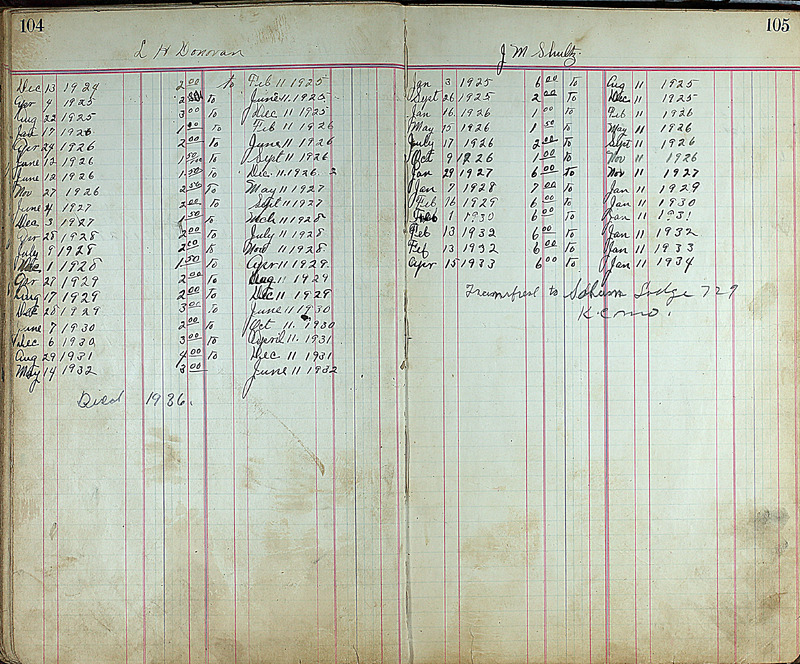 104
L H Donovan
Dec 13 1924 2 00 to Feb 11 1925
Apr 4 1925 2 To June 11. 1925
Aug 22 1925 3 00 To Dec 11 1925
Jan 17 1926 1 00 To Feb 11 1926
Apr 24 1926 2 00 To June 11 1926
June 12 1926 1 50 To Sept 11 1926
June 12 1926 1 50 To Dec. 11 1926. 2
Nov 27 1926 2 50 To May 11 1927
June 4 1927 2 00 To Sept 11 1927
Dec 3 1927 1 50 To Mch 11 1928
Apr 28 1928 2 00 To July 11 1928
July 9 1928 2 00 To Nov 11 1928
1 1928 1 50 To Apr 11 1929
Apr 27 1929 2 00 To Aug 11 1929
Aug 17 1929 2 00 To Dec 11 1929
Dec 28 1929 3 00 To June 11 1930
June 7 1930 2 00 To Oct 11. 1930
Dec 6 1930 3 00 To April 11. 1931
Aug 29 1931 4 00 To Dec 11 1931
May 14 1932 3 00 June 11 1932
Died 1936.
105
J M Shultz
Jan 3 1925 6 00 To Aug 11 1925
Sept 26 1925 2 00 To Dec 11 1925
Jan 16 1926 1 00 To Feb 11 1926
May 15 1926 1 50 To May 11 1926
July 17 1926 2 00 To Sept 11 1926
Oct 9 1926 1 00 To Nov 11 1926
Jan 29 1927 6 00 To Nov 11 1927
Jan 7 1928 7 00 To Jan 11 1929
Feb 16 1929 6 00 To Jan 11 1930
Feb 1 1930 6 00 To Jan 11 1931
Feb 13 1932 6 00 To Jan 11 1932
Feb 13 1932 6 00 To Jan 11 1933
Apr 15 1933 6 00 To Jan 11 1934
to Lodge 729
K C Mo.